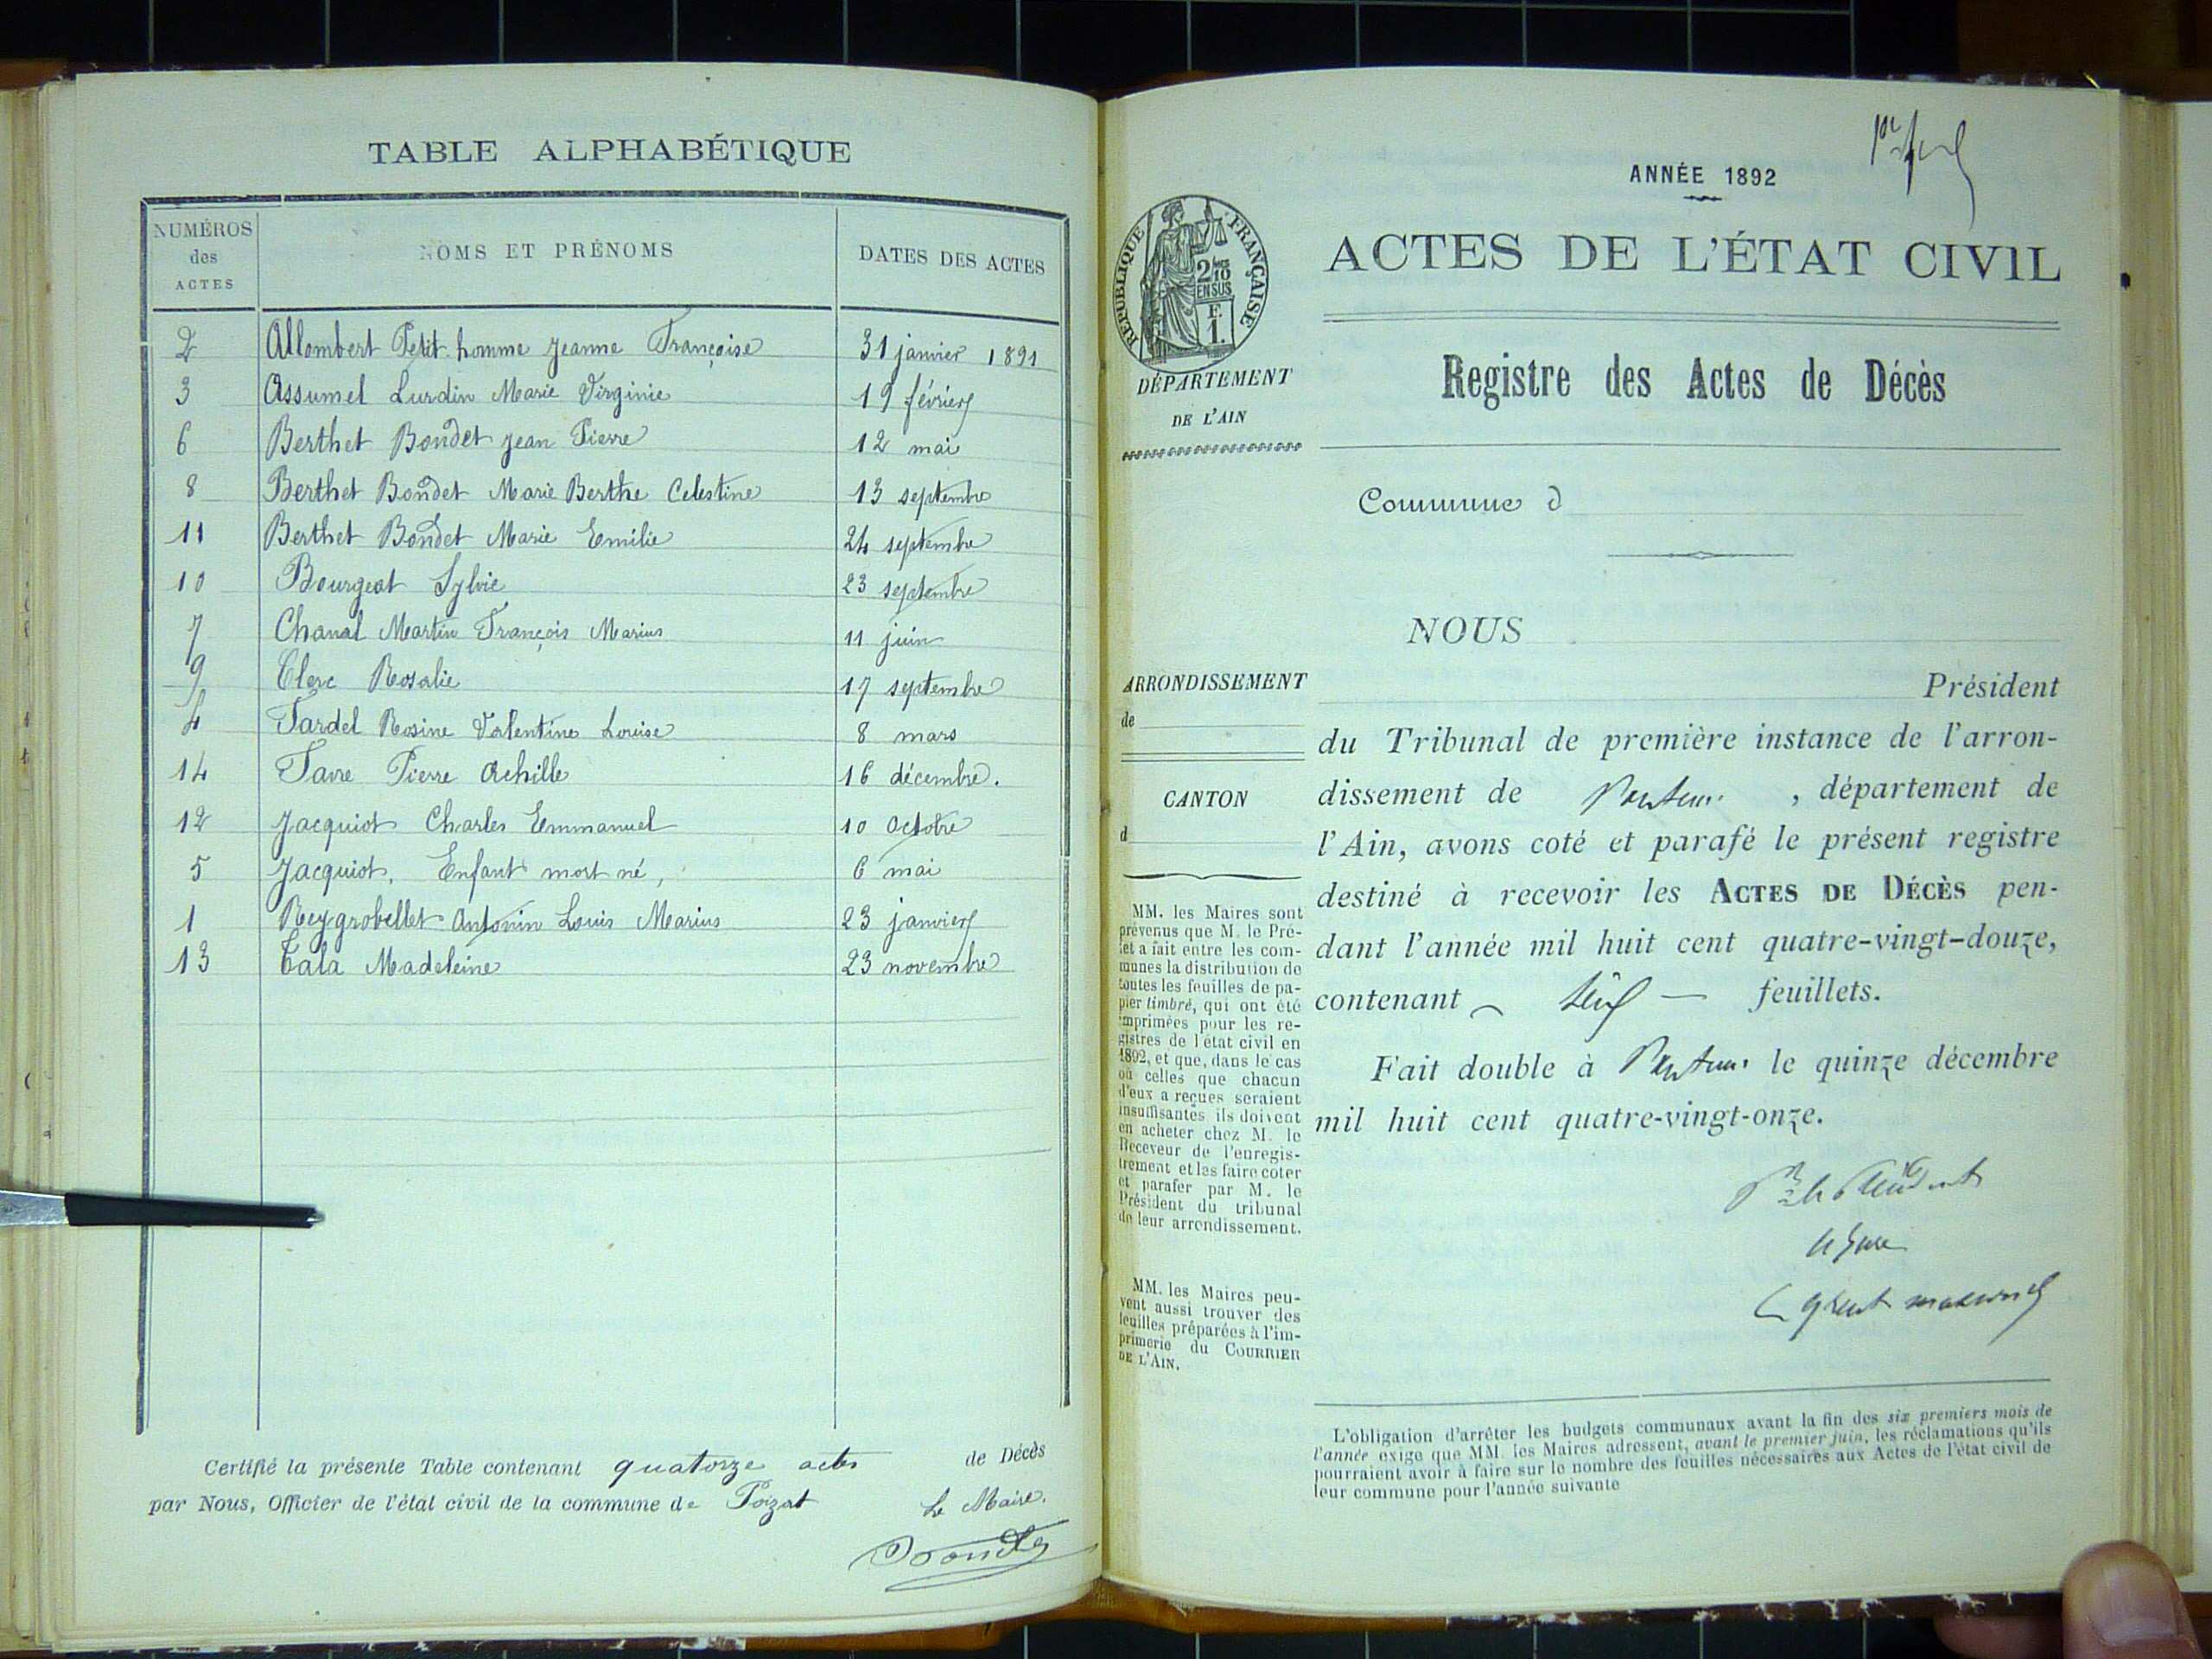 TABLE ALPHABÉTIQUE
NUMÉROS des ACTES NOMS ET PRÉNOMS DATES DES ACTES
2 Allombert Petit-homme Jeanne Françoise 31 janvier 1891
3 Assumel Lurdin Marie Virginie 19 février
6 Berthet Bondet Jean Pierre 12 mai
8 Berthet Bondet Marie Berthe Celestine 13 septembre
11 Berthet Bondet Marie Emilie 24 septembre
10 Bourgeat Sylvie 23 septembre
7 Chanal Martin François Marius 11 juin
9 Clerc Rosalie 17 septembre
4 Fardel Rosine Valentine Louise 8 mars
14 Favre Pierre Achille 16 décembre.
12 Jacquiot Charles Emmanuel 10 octobre
5 Jacquiot, Enfant mort né, 6 mai
1 Reygrobellet Antonin Louis Marius 23 janvier
13 Tala Madeleine 23 novembre
Certifié la présente Table contenant quatorze actes de Décès
par Nous, Officier de l'état civil de la commune de Poizat Le Maire.
ANNÉE 1892
RÉPUBLIQUE FRANÇAISE
2/10
EN SUS
F.
1.
ACTES DE L'ÉTAT CIVIL
DÉPARTEMENT
DE L'AIN
Registre des Actes de Décès
Commune d
NOUS
ARRONDISSEMENT
de
CANTON
d
Président
du Tribunal de première instance de l'arron-
dissement de Nantua , département de
l'Ain, avons coté et parafé le présent registre
destiné à recevoir les ACTES DE DÉCÈS pen-
dant l'année mil huit cent quatre-vingt-douze,
contenant feuillets.
Fait double à Nantua le quinze décembre
mil huit cent quatre-vingt-onze.
Pr le Président
le Juge
MM. les Maires sont
prévenus que M. le Pré-
fet a fait entre les com-
munes la distribution de
toutes les feuilles de pa-
pier timbré, qui ont été
imprimées pour les re-
gistres de l'état civil en
1892, et que, dans le cas
où celles que chacun
d'eux a reçues seraient
insuffisantes ils doivent
en acheter chez M. le
Receveur de l'enregis-
trement et les faire coter
et parafer par M. le
Président du tribunal
de leur arrondissement.
MM. les Maires peu-
vent aussi trouver des
feuilles préparées à l'im-
primerie du COURRIER
DE L'AIN.
L'obligation d'arrêter les budgets communaux avant la fin des six premiers mois de
l'année exige que MM. les Maires adressent, avant le premier juin, les réclamations qu'ils
pourraient avoir à faire sur le nombre des feuilles nécessaires aux Actes de l'état civil de
leur commune pour l'année suivante